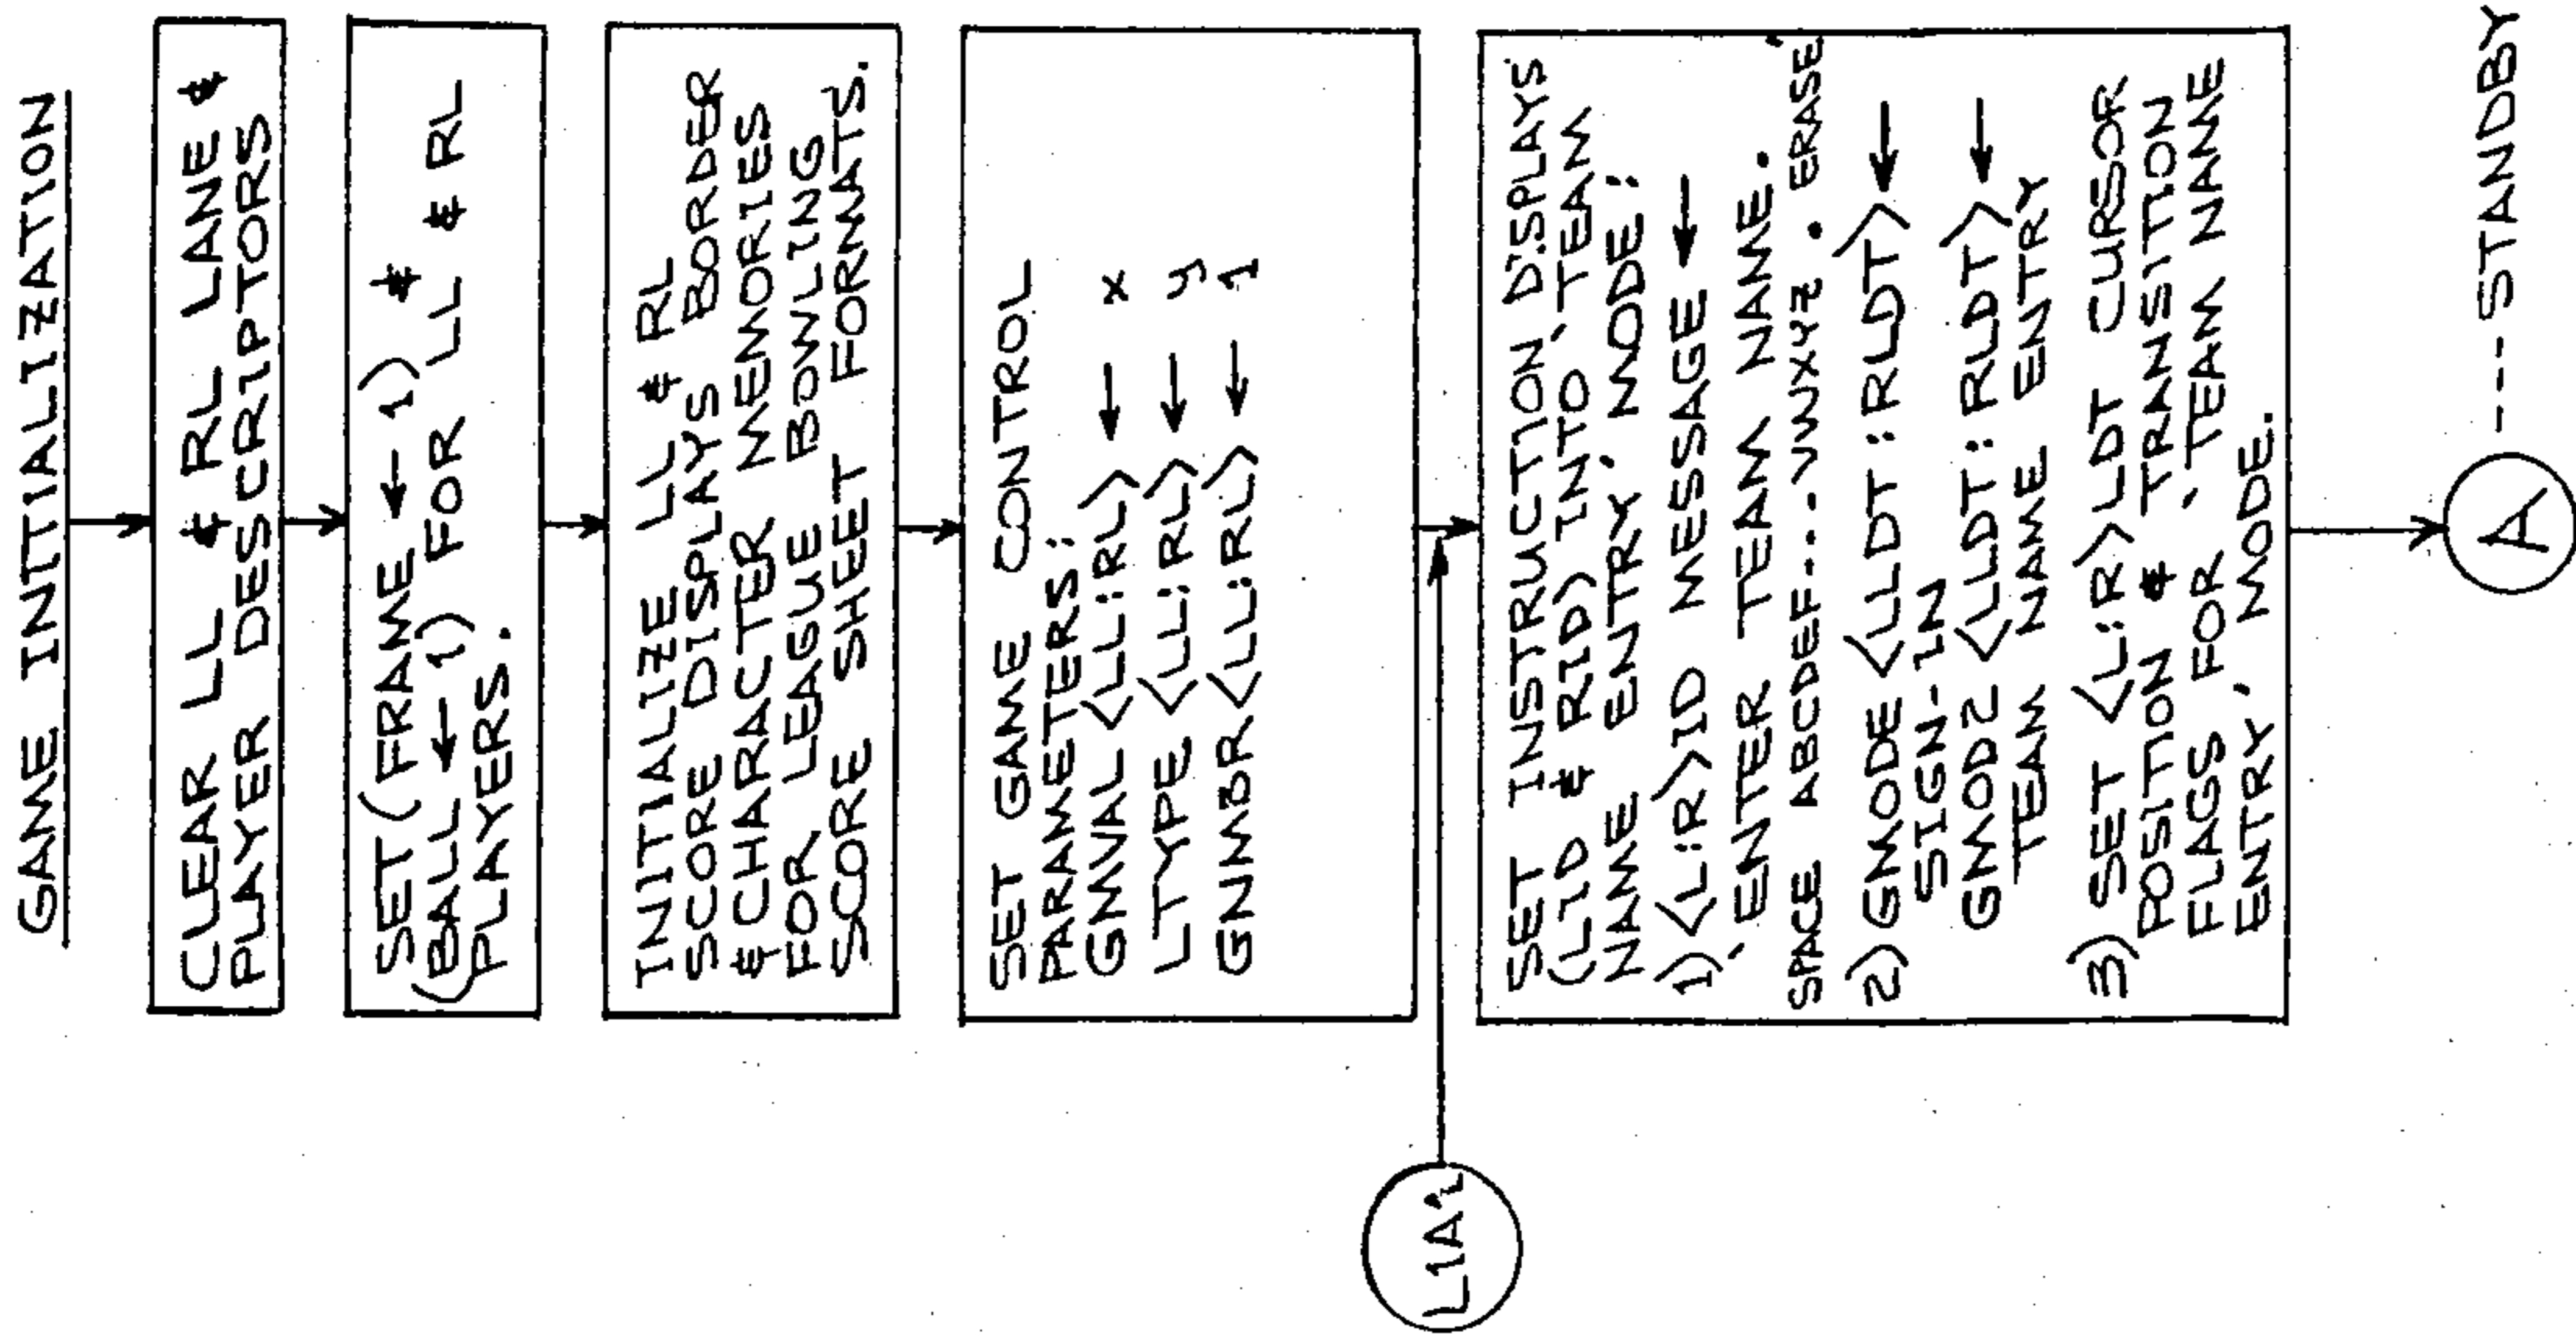 GAME INITIALIZATION
CLEAR LL & RL LANE &
PLAYER DESCRIPTORS
SET (FRAME ← 1) &
(BALL ← 1) FOR LL & RL
PLAYERS.
INITIALIZE LL & RL
SCORE DISPLAYS BORDER
& CHARACTER MEMORIES
FOR LEAGUE BOWLING
SCORE SHEET FORMATS.
SET GAME CONTROL
PARAMETERS:
GMVAL <LL:RL> ← x
LTYPE <LL:RL> ← y
GNMBR <LL:RL> ← 1
L1A1
SET INSTRUCTION DISPLAYS
(LID & RID) INTO `TEAM
NAME ENTRY' MODE:
1) <L:R>ID MESSAGE ←
`ENTER TEAM NAME.
SPACE ABCDEF...VWXYZ . ERASE'
2) GMODE <LLDT:RLDT> ←
SIGN-IN
GMOD2 <LLDT:RLDT> ←
TEAM NAME ENTRY
3) SET <L:R>LDT CURSOR
POSITION & TRANSITION
FLAGS FOR `TEAM NAME
ENTRY' MODE.
A ---STANDBY